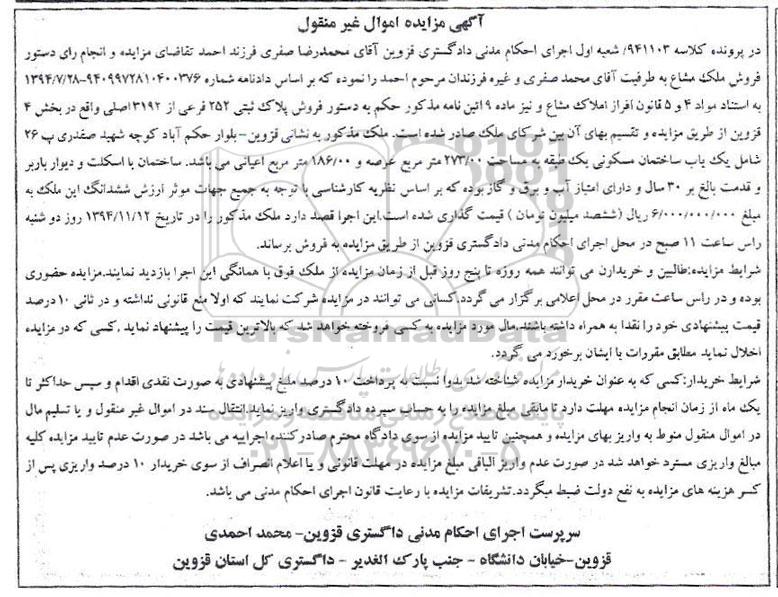 آگهی مزایده اموال غیر منقول
در پرونده کلاسه ۹۴۱۱۰۳/ شعبه اول اجرای احکام مدنی دادگستری قزوین آقای محمدرضا صفری فرزند احمد تقاضای مزایده و انجام رای دستور
فروش ملک مشاع به طرفیت آقای محمد صفری و غیره فرزندان مرحوم احمد را نموده که بر اساس دادنامه شماره ۹۴۰۹۹۷۲۸۱۰۴۰۰۳۷۶-۱۳۹۴/۷/۲۸
به استناد مواد ۴ و ۵ قانون افراز املاک مشاع و نیز ماده ۹ ائین نامه مذکور حکم به دستور فروش پلاک ثبتی ۲۵۲ فرعی از ۳۱۹۲ اصلی واقع در بخش ۴
قزوین از طریق مزایده و تقسیم بهای آن بین شرکای ملک صادر شده است. ملک مذکور به نشانی قزوین-بلوار حکم آباد کوچه شهید صفدری پ ۲۶
شامل یک باب ساختمان مسکونی یک طبقه به مساحت ۲۷۳/۰۰ متر مربع عرصه و ۱۸۶/۰۰ متر مربع اعیانی می باشد. ساختمان با اسکلت و دیوار باربر
و قدمت بالغ بر ۳۰ سال و دارای امتیاز آب و برق و گاز بوده که بر اساس نظریه کارشناسی با توجه به جمیع جهات موثر ارزش ششدانگ این ملک به
مبلغ ۶/۰۰۰/۰۰۰/۰۰۰ ریال (ششصد میلیون تومان ) قیمت گذاری شده است.این اجرا قصد دارد ملک مذکور را در تاریخ ۱۳۹۴/۱۱/۱۲ روز دو شنبه
راس ساعت ۱۱ صبح در محل اجرای احکام مدنی دادگستری قزوین از طریق مزایده به فروش برساند.
شرایط مزایده:طالبین و خریدارن می توانند همه روزه تا پنج روز قبل از زمان مزایده از ملک فوق با همانگی این اجرا بازدید نمایند.مزایده حضوری
بوده و در راس ساعت مقرر در محل اعلامی برگزار می گردد.کسانی می توانند در مزایده شرکت نمایند که اولا منع قانونی نداشته و در ثانی ۱۰ درصد
قیمت پیشنهادی خود را نقدا به همراه داشته باشند.مال مورد مزایده به کسی فروخته خواهد شد که بالاترین قیمت را پیشنهاد نماید ,کسی که در مزایده
اخلال نماید مطابق مقررات با ایشان برخورد می گردد.
شرایط خریدار:کسی که به عنوان خریدار مزایده شناخته شد بدوا نسبت به پرداخت ۱۰ درصد مبلغ پیشنهادی به صورت نقدی اقدام و سپس حداکثر تا
یک ماه از زمان انجام مزایده مهلت دارد تا مابقی مبلغ مزایده را به حساب سپرده دادگستری واریز نماید.انتقال سند در اموال غیر منقول و یا تسلیم مال
در اموال منقول منوط به واریز بهای مزایده و همچنین تایید مزایده از سوی دادگاه محترم صادرکننده اجراییه می باشد در صورت عدم تایید مزایده کلیه
مبالغ واریزی مسترد خواهد شد در صورت عدم واریز الباقی مبلغ مزایده در مهلت قانونی و یا اعلام انصراف از سوی خریدار ۱۰ درصد واریزی پس از
کسر هزینه های مزایده به نفع دولت ضبط میگردد.تشریفات مزایده با رعایت قانون اجرای احکام مدنی می باشد.
سرپرست اجرای احکام مدنی داگستری قزوین- محمد احمدی
قزوین-خیابان دانشگاه - جنب پارک الغدیر - داگستری کل استان قزوین
ParsNamadData
۰۲۱-۸۸۳۴۹۶۷۰-۵